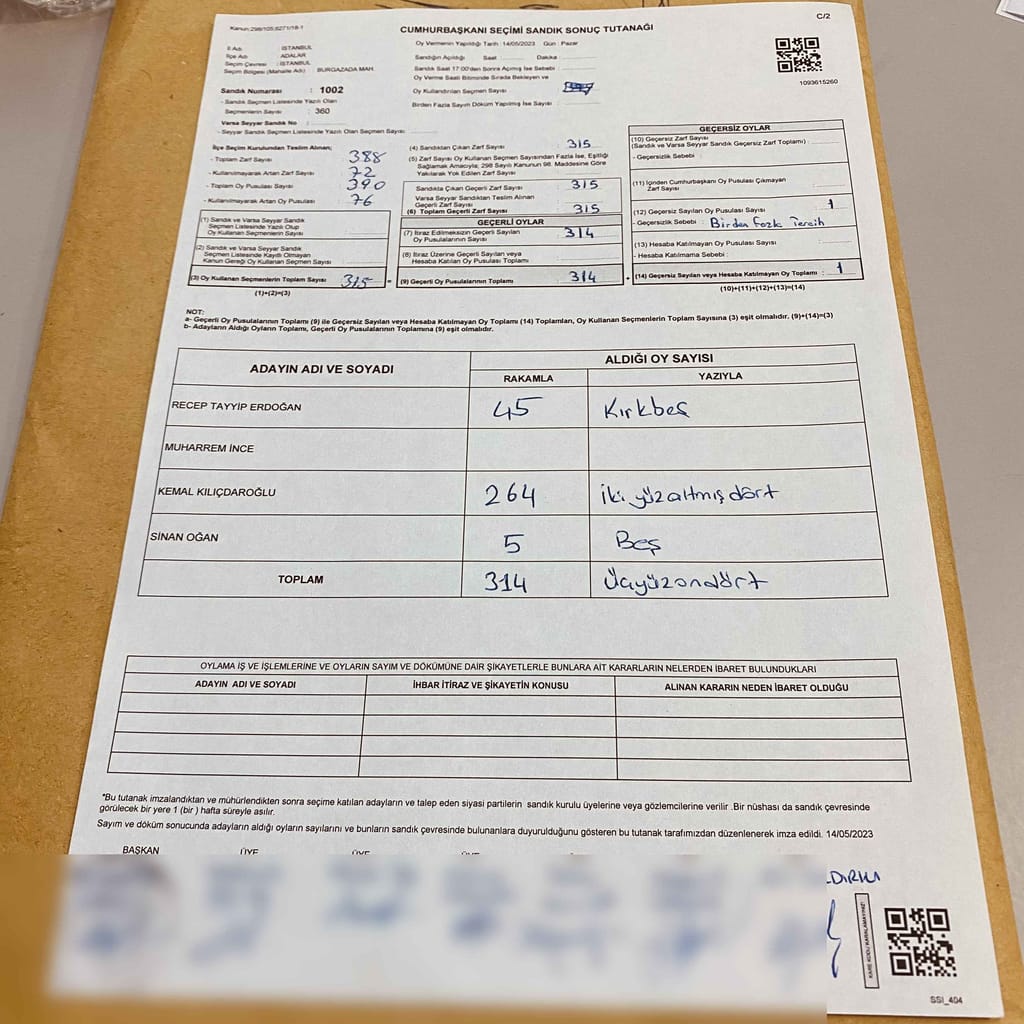 Kanun:298/105,6271/18-1
CUMHURBAŞKANI SEÇİMİ SANDIK SONUÇ TUTANAĞI
C/2
İl Adı : İSTANBUL
İlçe Adı : ADALAR
Seçim Çevresi : İSTANBUL
Seçim Bölgesi (Mahalle Adı) : BURGAZADA MAH.
Sandık Numarası : 1002
- Sandık Seçmen Listesinde Yazılı Olan
Seçmenlerin Sayısı : 360
Varsa Seyyar Sandık No :
- Seyyar Sandık Seçmen Listesinde Yazılı Olan Seçmen Sayısı :
Oy Vermenin Yapıldığı Tarih : 14/05/2023 Gün : Pazar
Sandığın Açıldığı Saat Dakika
Sandık Saat 17:00'den Sonra Açılmış İse Sebebi :
Oy Verme Saati Bitiminde Sırada Bekleyen ve
Oy Kullandırılan Seçmen Sayısı :
Birden Fazla Sayım Döküm Yapılmış İse Sayısı :
1093615260
İlçe Seçim Kurulundan Teslim Alınan;
- Toplam Zarf Sayısı : 388
- Kullanılmayarak Artan Zarf Sayısı : 72
- Toplam Oy Pusulası Sayısı : 390
- Kullanılmayarak Artan Oy Pusulası : 76
(1) Sandık ve Varsa Seyyar Sandık
Seçmen Listesinde Yazılı Olup
Oy Kullanan Seçmen Sayısı :
(2) Sandık ve Varsa Seyyar Sandık
Seçmen Listesinde Kayıtlı Olmayan
Kanun Gereği Oy Kullanan Seçmen Sayısı :
(3) Oy Kullanan Seçmenlerin Toplam Sayısı : 315 =
(1)+(2)=(3)
(4) Sandıktan Çıkan Zarf Sayısı : 315
(5) Zarf Sayısı Oy Kullanan Seçmen Sayısından Fazla İse, Eşitliği
Sağlamak Amacıyla; 298 Sayılı Kanunun 98. Maddesine Göre
Yakılarak Yok Edilen Zarf Sayısı :
Sandıkta Çıkan Geçerli Zarf Sayısı : 315
Varsa Seyyar Sandıktan Teslim Alınan
Geçerli Zarf Sayısı :
(6) Toplam Geçerli Zarf Sayısı : 315
GEÇERLİ OYLAR
(7) İtiraz Edilmeksizin Geçerli Sayılan
Oy Pusulalarının Sayısı : 314
(8) İtiraz Üzerine Geçerli Sayılan veya
Hesaba Katılan Oy Pusulası Toplamı :
(9) Geçerli Oy Pusulalarının Toplamı : 314 +
GEÇERSİZ OYLAR
(10) Geçersiz Zarf Sayısı
(Sandık ve Varsa Seyyar Sandık Geçersiz Zarf Toplamı) :
- Geçersizlik Sebebi :
(11) İçinden Cumhurbaşkanı Oy Pusulası Çıkmayan
Zarf Sayısı :
(12) Geçersiz Sayılan Oy Pusulası Sayısı : 1
- Geçersizlik Sebebi : Birden Fazla Tercih
(13) Hesaba Katılmayan Oy Pusulası Sayısı :
- Hesaba Katılmama Sebebi :
(14) Geçersiz Sayılan veya Hesaba Katılmayan Oy Toplamı : 1
(10)+(11)+(12)+(13)=(14)
NOT:
a- Geçerli Oy Pusulalarının Toplamı (9) ile Geçersiz Sayılan veya Hesaba Katılmayan Oy Toplamı (14) Toplamları, Oy Kullanan Seçmenlerin Toplam Sayısına (3) eşit olmalıdır. (9)+(14)=(3)
b- Adayların Aldığı Oyların Toplamı, Geçerli Oy Pusulalarının Toplamına (9) eşit olmalıdır.
ADAYIN ADI VE SOYADI ALDIĞI OY SAYISI
RAKAMLA YAZIYLA
RECEP TAYYİP ERDOĞAN 45 Kırkbeş
MUHARREM İNCE
KEMAL KILIÇDAROĞLU 264 İki yüzaltmış dört
SİNAN OĞAN 5 Beş
TOPLAM 314 Üçyüzondört
OYLAMA İŞ VE İŞLEMLERİNE VE OYLARIN SAYIM VE DÖKÜMÜNE DAİR ŞİKAYETLERLE BUNLARA AİT KARARLARIN NELERDEN İBARET BULUNDUKLARI
ADAYIN ADI VE SOYADI İHBAR İTİRAZ VE ŞİKAYETİN KONUSU ALINAN KARARIN NEDEN İBARET OLDUĞU
*Bu tutanak imzalandıktan ve mühürlendikten sonra seçime katılan adayların ve talep eden siyasi partilerin sandık kurulu üyelerine veya gözlemcilerine verilir .Bir nüshası da sandık çevresinde
görülecek bir yere 1 (bir ) hafta süreyle asılır.
Sayım ve döküm sonucunda adayların aldığı oyların sayılarını ve bunların sandık çevresinde bulunanlara duyurulduğunu gösteren bu tutanak tarafımızdan düzenlenerek imza edildi. 14/05/2023
BAŞKAN ÜYE ÜYE ÜYE
KARE KODU KARALAMAYINIZ!
SSI_404